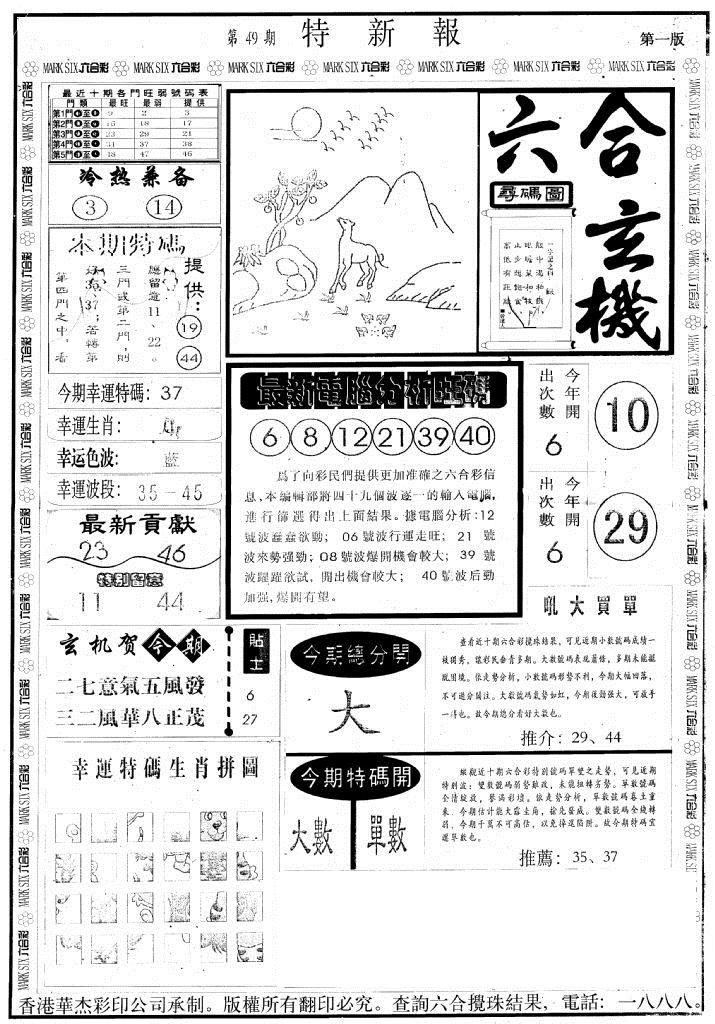 第49期 特新報 第一版
MARK SIX 六合彩 MARK SIX 六合彩 MARK SIX 六合彩 MARK SIX 六合彩 MARK SIX 六合彩 MARK SIX 六合彩 MARK SIX 六合彩
最近十期各門旺弱號碼表
門類 最旺 最弱 提供
第1門 至 9 2 3
第2門 至 15 18 17
第3門 至 23 29 21
第4門 至 31 37 38
第5門 至 48 47 46
冷热兼备
3 14
本期特碼
提供：
19
44
應留意11、22。
三門或第二門，則
37；若轉第
第四門之中，看
今期幸運特碼：37
幸運生肖：
幸运色波：藍
幸運波段：35－45
最新貢獻
23 46
特別留意
11 44
六合玄機
尋碼圖
最新電腦分析旺號
6 8 12 21 39 40
爲了向彩民們提供更加准確之六合彩信
息,本編輯部將四十九個波逐一的輸入電腦,
進行篩選得出上面結果。據電腦分析:12
號波蠢蠢欲動; 06號波行運走旺; 21 號
波來勢强勁;08號波爆開機會較大; 39 號
波躍躍欲試，開出機會較大; 40號波后勁
加强,爆開有望。
今年開出次數 6
10
今年開出次數 6
29
玄机贺今期
二七意氣五風發
三二風華八正茂
貼士
6
27
幸運特碼生肖拼圖
今期總分開
大
吼大買單
查看近十期六合彩攪珠結果，可見近期小數號碼成績一
枝獨秀，讓彩民齒青多期。大數號碼表現蕭條，多期未能擺
脫困境。依走勢分析，小數號碼形勢不利，今期大幅回落，
不可過分關注。大數號碼氣勢如虹，今期後勁强大，可放手
一搏也。故今期總分看好大數也。
推介：29、44
今期特碼開
大數 單數
縱觀近十期六合彩特別號碼單雙之走勢，可見近期
特別波：雙數號碼弱勢難改，未能扭轉劣勢。單數號碼
全情綻放，譽滿彩壇。依走勢分析，單數號碼卷土重
來，今期估計能大露主角，搶先發威。雙數號碼全綫轉
弱，今期千萬不可高估，以免掉進陷阱。故今期特碼宜
選單數也。
推薦：35、37
香港華杰彩印公司承制。版權所有翻印必究。查詢六合攪珠結果，電話：一八八八。